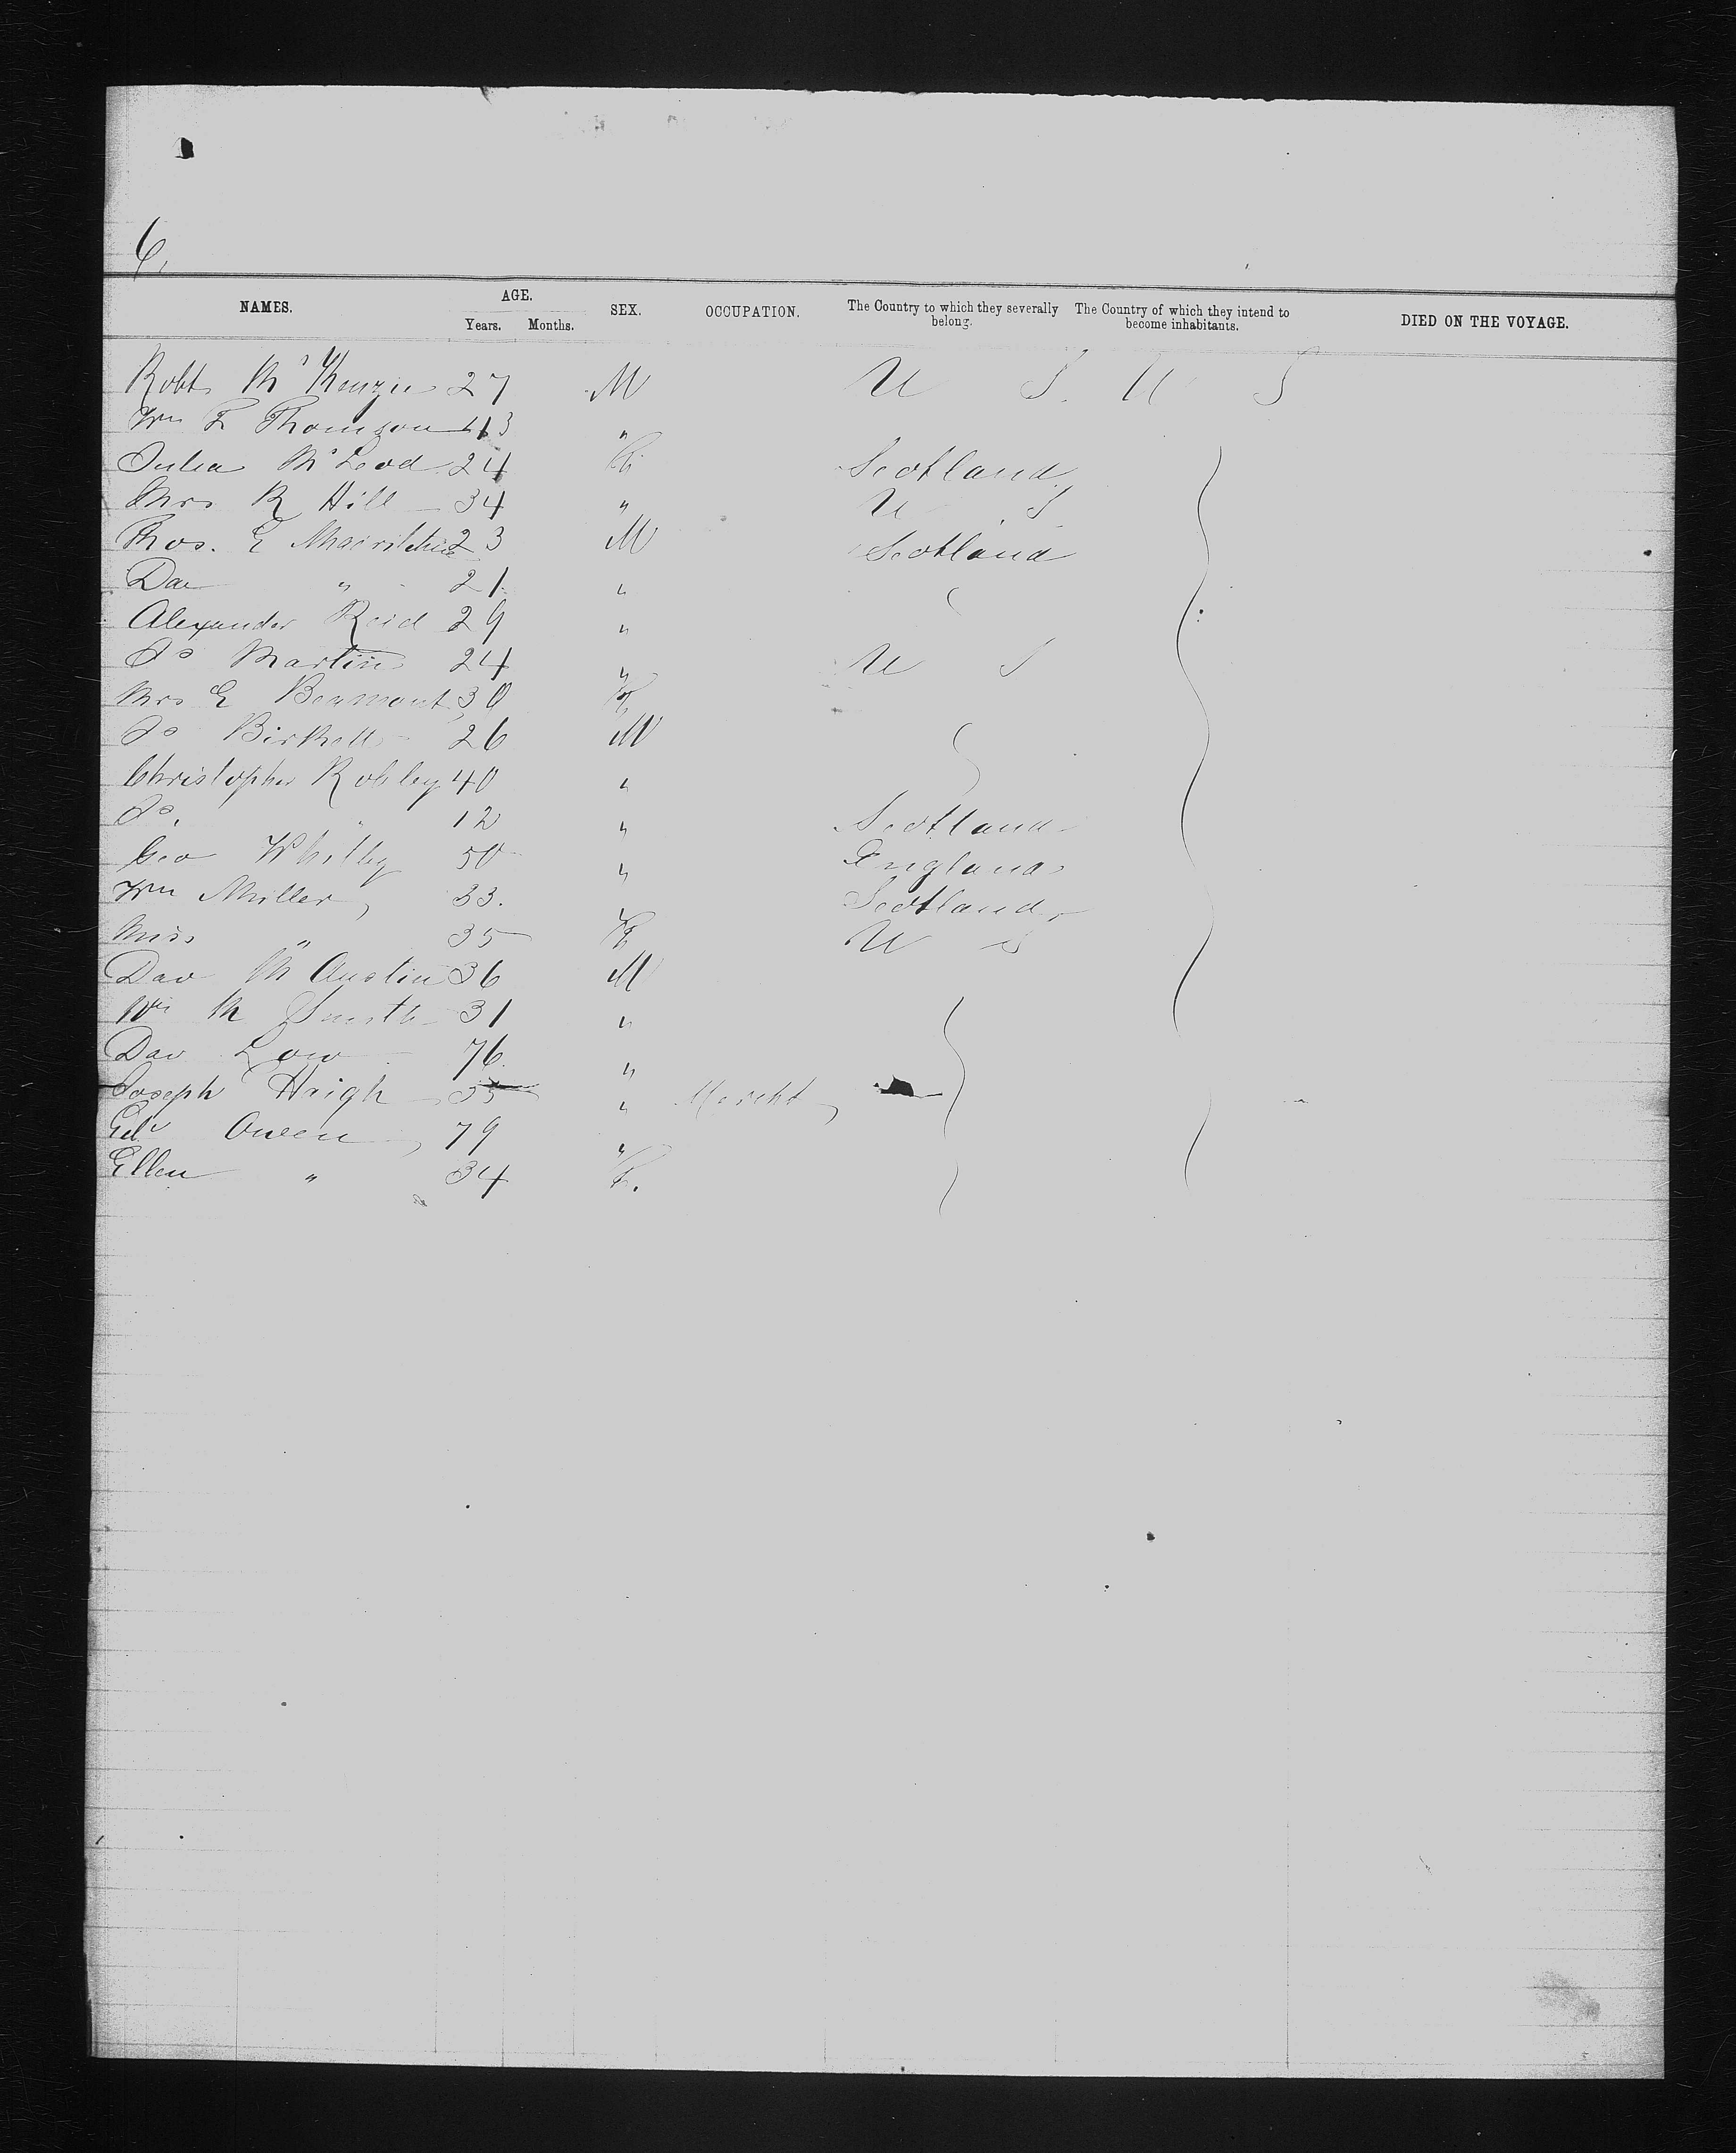 6,
NAMES. AGE. Years. Months. SEX. OCCUPATION. The Country to which they severally belong. The Country of which they intend to become inhabitants. DIED ON THE VOYAGE.
Robt McKenzie 27 M U S. U S
Wm F Thomson 43 "
Julia McLeod 24 F Scotland
Mrs R Hill 34 " U S
Thos. E Macritchie 23 M Scotland
Dav " 21 "
Alexander Reid 29 "
Jo Martin 24 " U S
Mrs E Beaumont 30 F
Jo Birkett 26 M
Christopher Robley 40 "
Jo. " 12 " Scotland
Geo Whitby 50 " England
Wm Miller, 33. " Scotland
Miss " 35 F U S
Dav McAustin 36 M
Wm M Smith 31 "
Dav Low 76 "
Joseph Haigh 35 " Mercht
Edw Owen, 79 "
Ellen " 34 F.